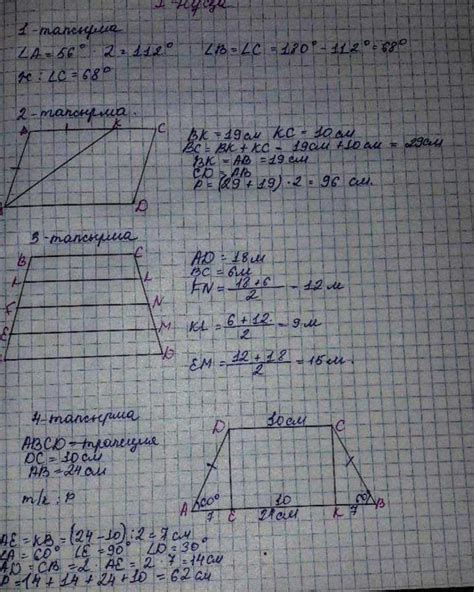 1-нұсқа
1-тапсырма
∠A = 56° · 2 = 112° ∠B = ∠C = 180° - 112° = 68°
Ж: ∠C = 68°
2-тапсырма.
B K C
D
BK = 19 см KC = 10 см
BC = BK + KC = 19см + 10 см = 29см
BK = AB = 19 см
CD = AB
P = (29 + 19) · 2 = 96 см.
3-тапсырма
B C
K L
F N
E M
D
AD = 18 м
BC = 6 м
FN = 18 + 6 / 2 = 12 м
KL = 6 + 12 / 2 = 9 м
EM = 12 + 18 / 2 = 15 м.
4-тапсырма
ABCD = трапеция
DC = 10 см
AB = 24 см
т/к: P
D 10 см C
A 60° 60° B
7 E 10 K 7
24 см
AE = KB = (24 - 10) : 2 = 7 см
∠A = 60° ∠E = 90° ∠D = 30°
AD = CB = 2 · AE = 2 · 7 = 14 см
P = 14 + 14 + 24 + 10 = 62 см